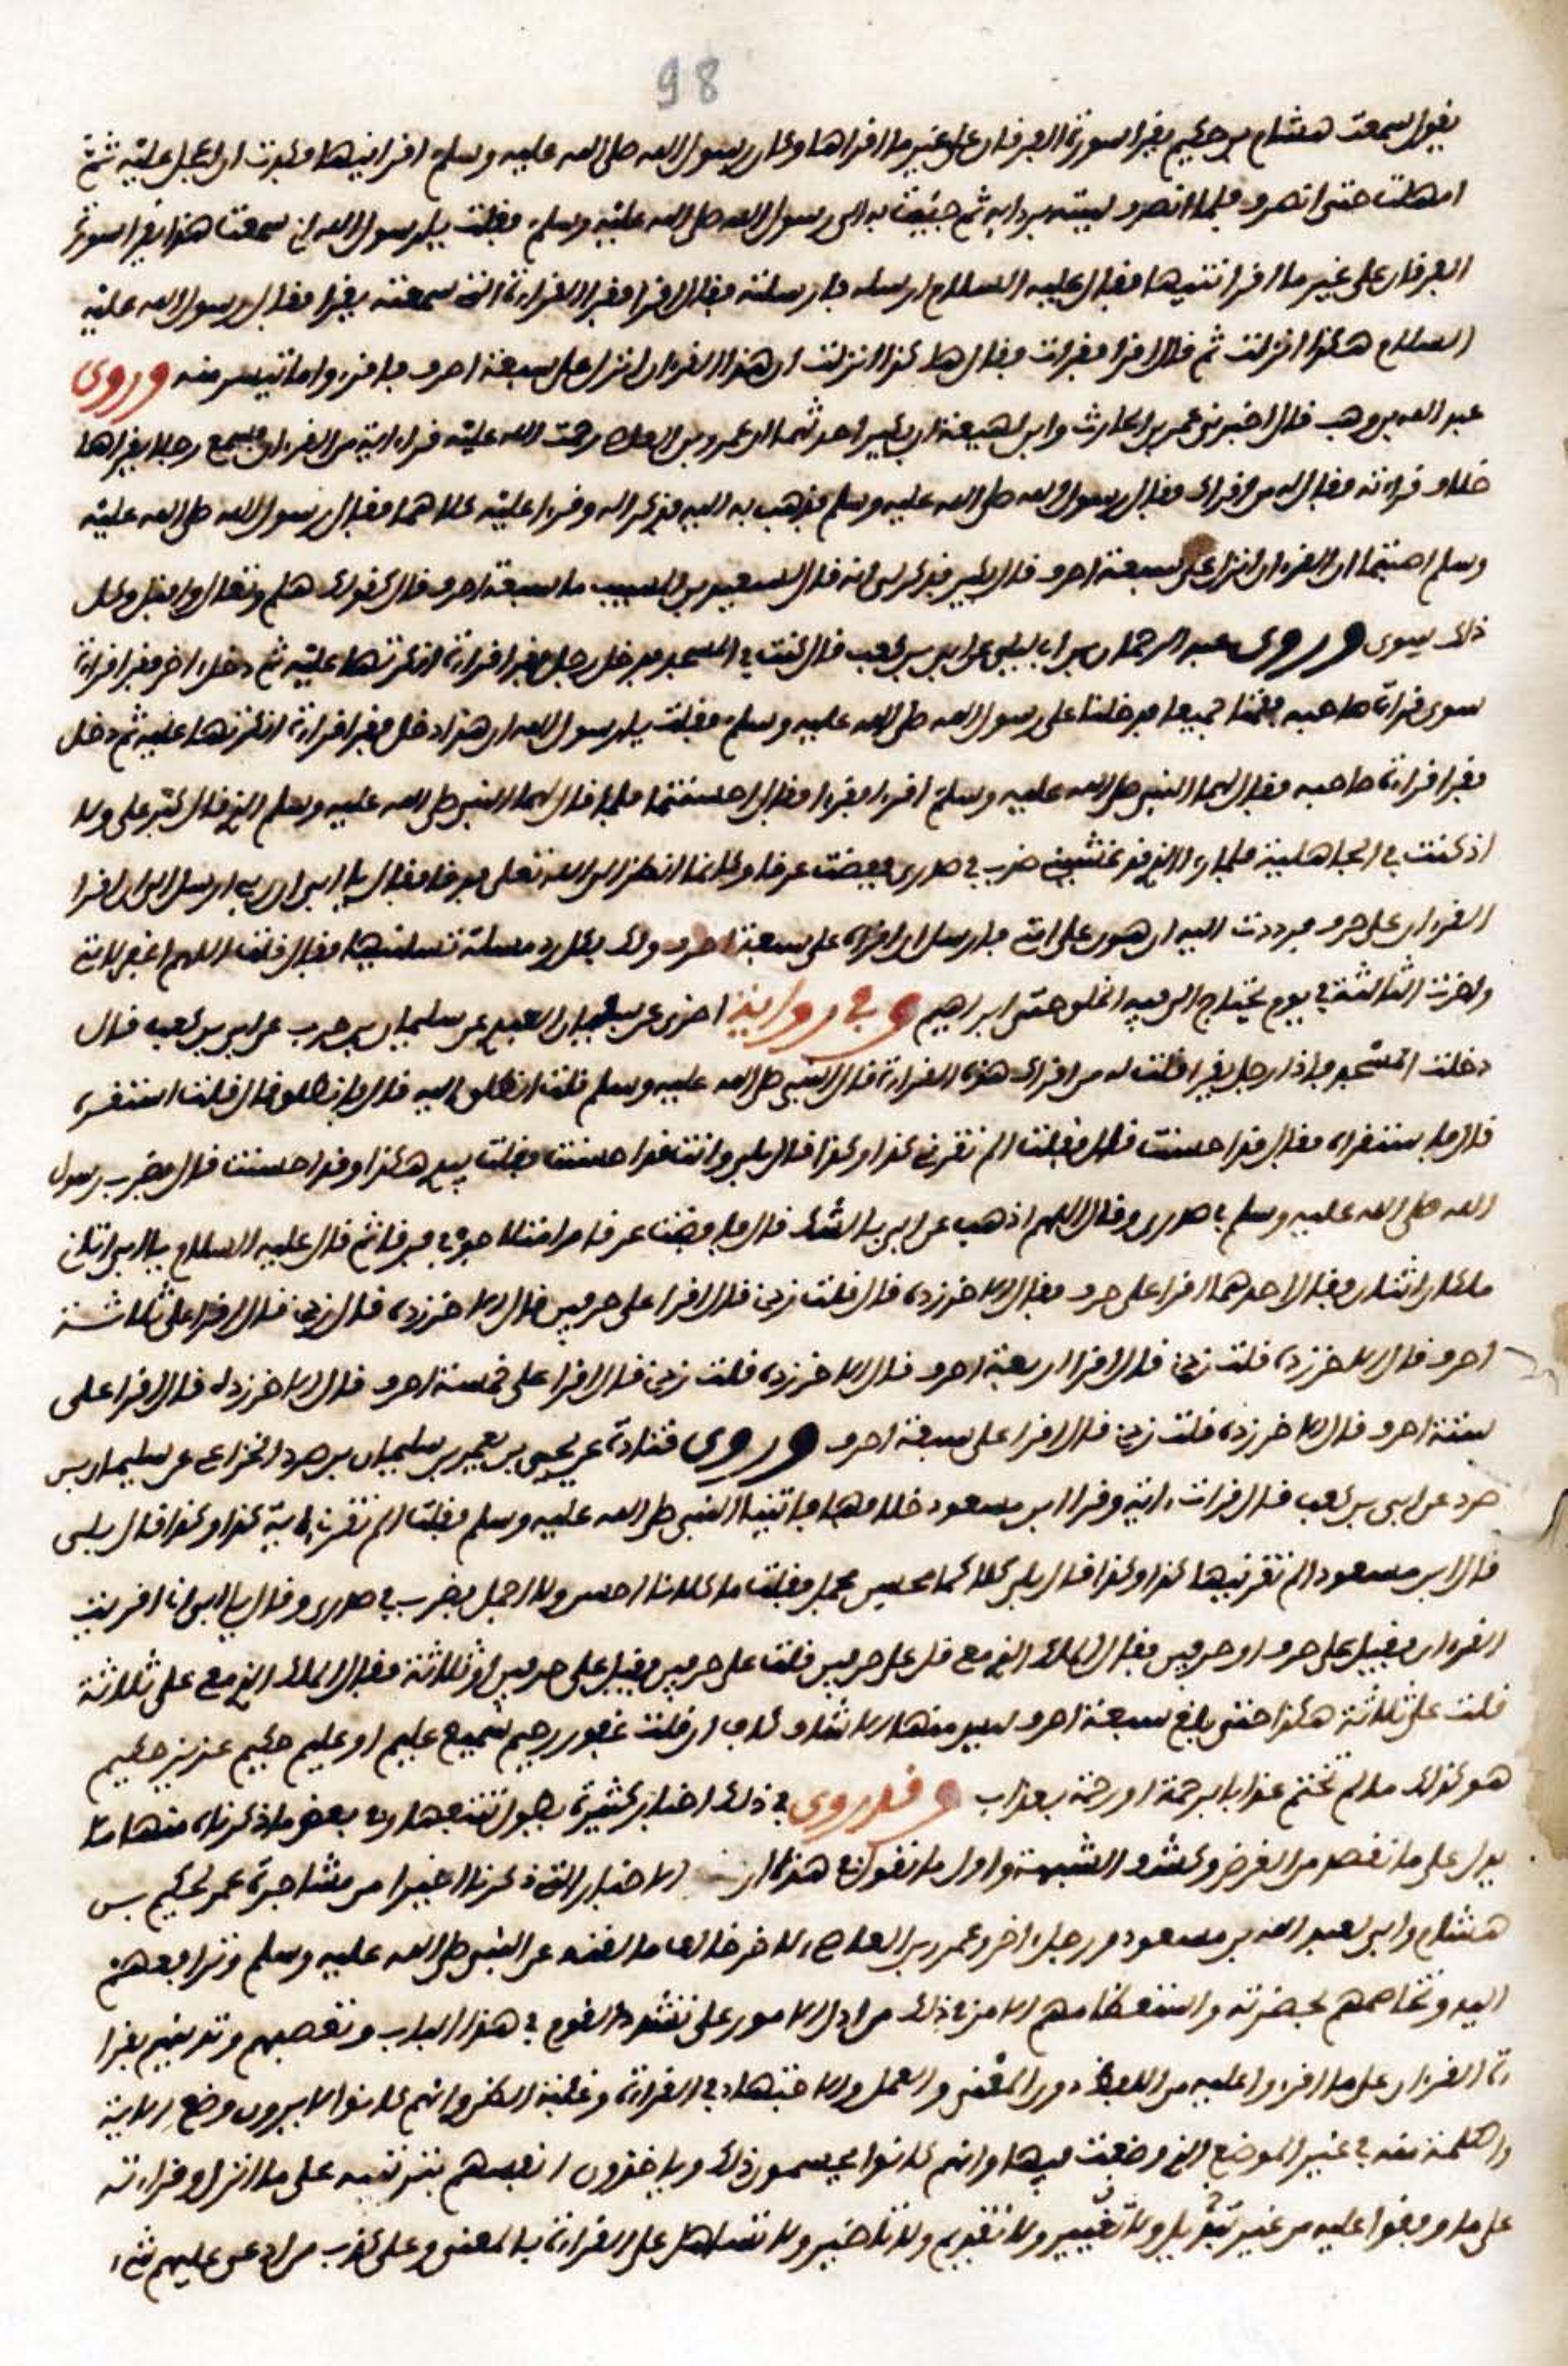 98
يقول سمعت هشام بن حكيم يقرا سورة الفرقان على غير ما اقراها وكان رسول الله صلى الله عليه وسلم اقرانيها فكدت ان اعجل عليه ثم
امهلت حتى انصرف فلما انصرف لببته بردايه ثم جئت به الى رسول الله صلى الله عليه وسلم فقلت يا رسول الله اني سمعت هذا يقرا سورة
الفرقان على غير ما اقراتنيها فقال عليه السلام ارسله فارسلته فقال اقرا فقرا القراءة التي سمعته يقرا فقال رسول الله عليه
السلام هكذا انزلت ثم قال اقرا فقرات فقال هاكذا انزلت ان هذا القرءان انزل على سبعة احرف فاقرءوا ما تيسر منه وروى
عبد الله بن وهب قال اخبرني عمر بن الحارث وابن لهيعة ان بكير احدثهما ان عمرو بن العاص رحمت الله عليه قراء اية من القرءان فسمع رجلا يقراها
خلاف قراءته فقال له من اقراك فقال رسول الله صلى الله عليه وسلم فذهب به اليه فذكر اله وقراء عليه كلاهما فقال رسول الله صلى الله عليه
وسلم اصبتما ان القرءان انزل على سبعة احرف قال بكير فذكر لي انه قال لسعيد بن المسيب ما سبعة احرف قال كقولك هلم وتعال واقبل وكل
ذلك سوى وروى عبد الرحمان بن ابي ليلى عن ابي بن كعب قال كنت في المسجد فدخل رجل فقرا قراءة انكرتها عليه ثم دخل اخر فقرا قراءة
سوى قراءة صاحبه فقمنا جميعا فدخلنا على رسول الله صلى الله عليه وسلم فقلت يا رسول الله ان هذا دخل فقرا قراءة انكرتها عليه ثم دخل
فقرا قراءة صاحبه فقال لهما النبي صلى الله عليه وسلم اقرءا فقرءا فقال احسنتما فلما قال لهما النبي صلى الله عليه وسلم الذي قال كبر علي ولا
اذ كنت في الجاهلية فلما رءا الذي قد غشيني ضرب في صدري ففضت عرفا وكانما انظر الى الله تعلى فرقا فقال يا ابي ان ربي ارسل الي ان اقرا
القرءان على حرف فرددت اليه ان هون على امتي فارسل ان اقراه على سبعة احرف ولك بكل ردة مسلة تسلنيها فقال قلت اللهم اغفر لامتي
واخرت الثالثة في يوم يحتاج الي فيه الخلق حتى ابراهيم وفي رواية اخرى عن سفيان العبدي عن سليمان بن حرب عن ابي بن كعب قال
دخلت المسجد فاذا رجل يقرا قلت له من اقراك هذه القراءة قال النبي صلى الله عليه وسلم قلت انطلق اليه قال فانطلق قال قلت استقره
قال فاستقراه فقال قد احسنت قال فقلت الم تقرني كذا وكذا قال بلى وانت قد احسنت فقلت بيدي هكذا وقد احسنت قال فضرب رسول
الله صلى الله عليه وسلم في صدري وقال اللهم اذهب عن ابي الشك قال ففضت عرقا وامتلا جوفي فرقا ثم قال عليه السلام يا ابي اتان
ملكان اثنان فقال احدهما اقرا على حرف فقال الاخر زده قال قلت زدني قال اقرا على حرفين قال الاخر زده قال زدني قال اقرا على ثلاثة
احرف قال الاخر زده قلت زدني قال اقرا اربعة احرف قال الاخر زده قلت زدني قال اقرا على خمسة احرف قال الاخر زده قال اقرا على
ستة احرف قال الاخر زده قلت زدني قال اقرا على سبعة احرف وروى قتادة عن يحيى بن يعمر بن سليمان بن صرد الخزاعي عن سليمان بن
صرد عن ابي بن كعب قال قرات اية وقرا ابن مسعود خلافها فاتينا النبي صلى الله عليه وسلم فقلت الم تقرني اية كذا وكذا قال بلى
قال ابن مسعود الم تقرنيها كذا وكذا قال بلى كلاكما محسن مجمل فقلت ما كلانا احسن ولا اجمل فضرب في صدري وقال يا ابي اني اقريت
القرءان فقيل على حرف او حرفين فقال الملك الذي معي قل على حرفين قلت على حرفين فقيل على حرفين او ثلاثة فقال الملك الذي معي على ثلاثة
قلت على ثلاثة هكذا حتى بلغ سبعة احرف ليس منها الا شاف كاف ان قلت غفور رحيم سميع عليم او عليم حكيم عزيز حكيم
هو كذلك ما لم تختم عذابا برحمة او رحمة بعذاب وقد روى في ذلك اخبار كثيرة يطول تتبعها وفي بعض ما ذكرناه منها ما
يدل على ما نقصد من الغرض وكشف الشبهة واول ما نقول في هذا ان الاخبار التي ذكرنا اخيرا من مشاجرة عمر لحكيم بن
هشام وابي لعبد الله بن مسعود ورجلا اخر وعمرو بن العاص لاخر خالف ما لقنه عن النبي صلى الله عليه وسلم وترافعهم
اليه وتخاصمهم بحضرته واستعظامهم الامر في ذلك من ادل الامور على تشدد القوم في هذا الباب وتعصبهم وتدينهم بقرا
ءة القرءان على ما اقرءوا عليه من اللفظ دون المعنى والعمل والاجتهاد في القراءة وغلبة الظن وانهم كانوا لا يرون وضع الاية
والكلمة منه في غير الموضع الذي وضعت فيها وانهم كانوا يحسمون ذلك وياخذون انفسهم بترتيبه على ما انزل وقراءته
على ما وقفوا عليه من غير تبديل ولا تغيير ولا تقديم ولا تاخير ولا تساهل على القراءة بالمعنى وعلى كذب من ادعى عليهم شيء